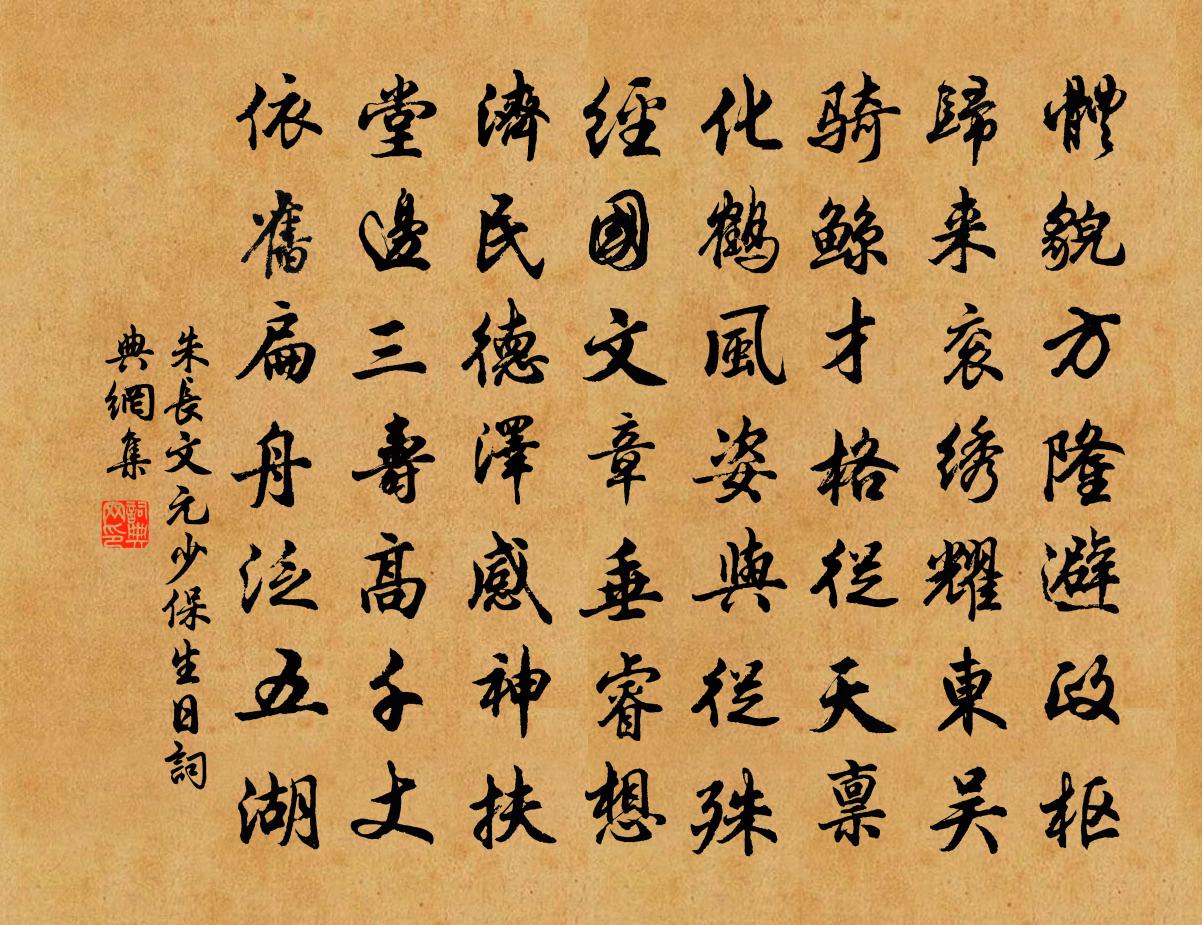 體貌方隆避政枢
歸来衮绣耀東吴
騎鲸才格從天禀
化鶴風姿與從殊
經國文章垂睿想
濟民德澤感神扶
堂邊三壽高千丈
依舊扁舟泛五湖
朱長文元少保生日詞
典網集
詞典网印